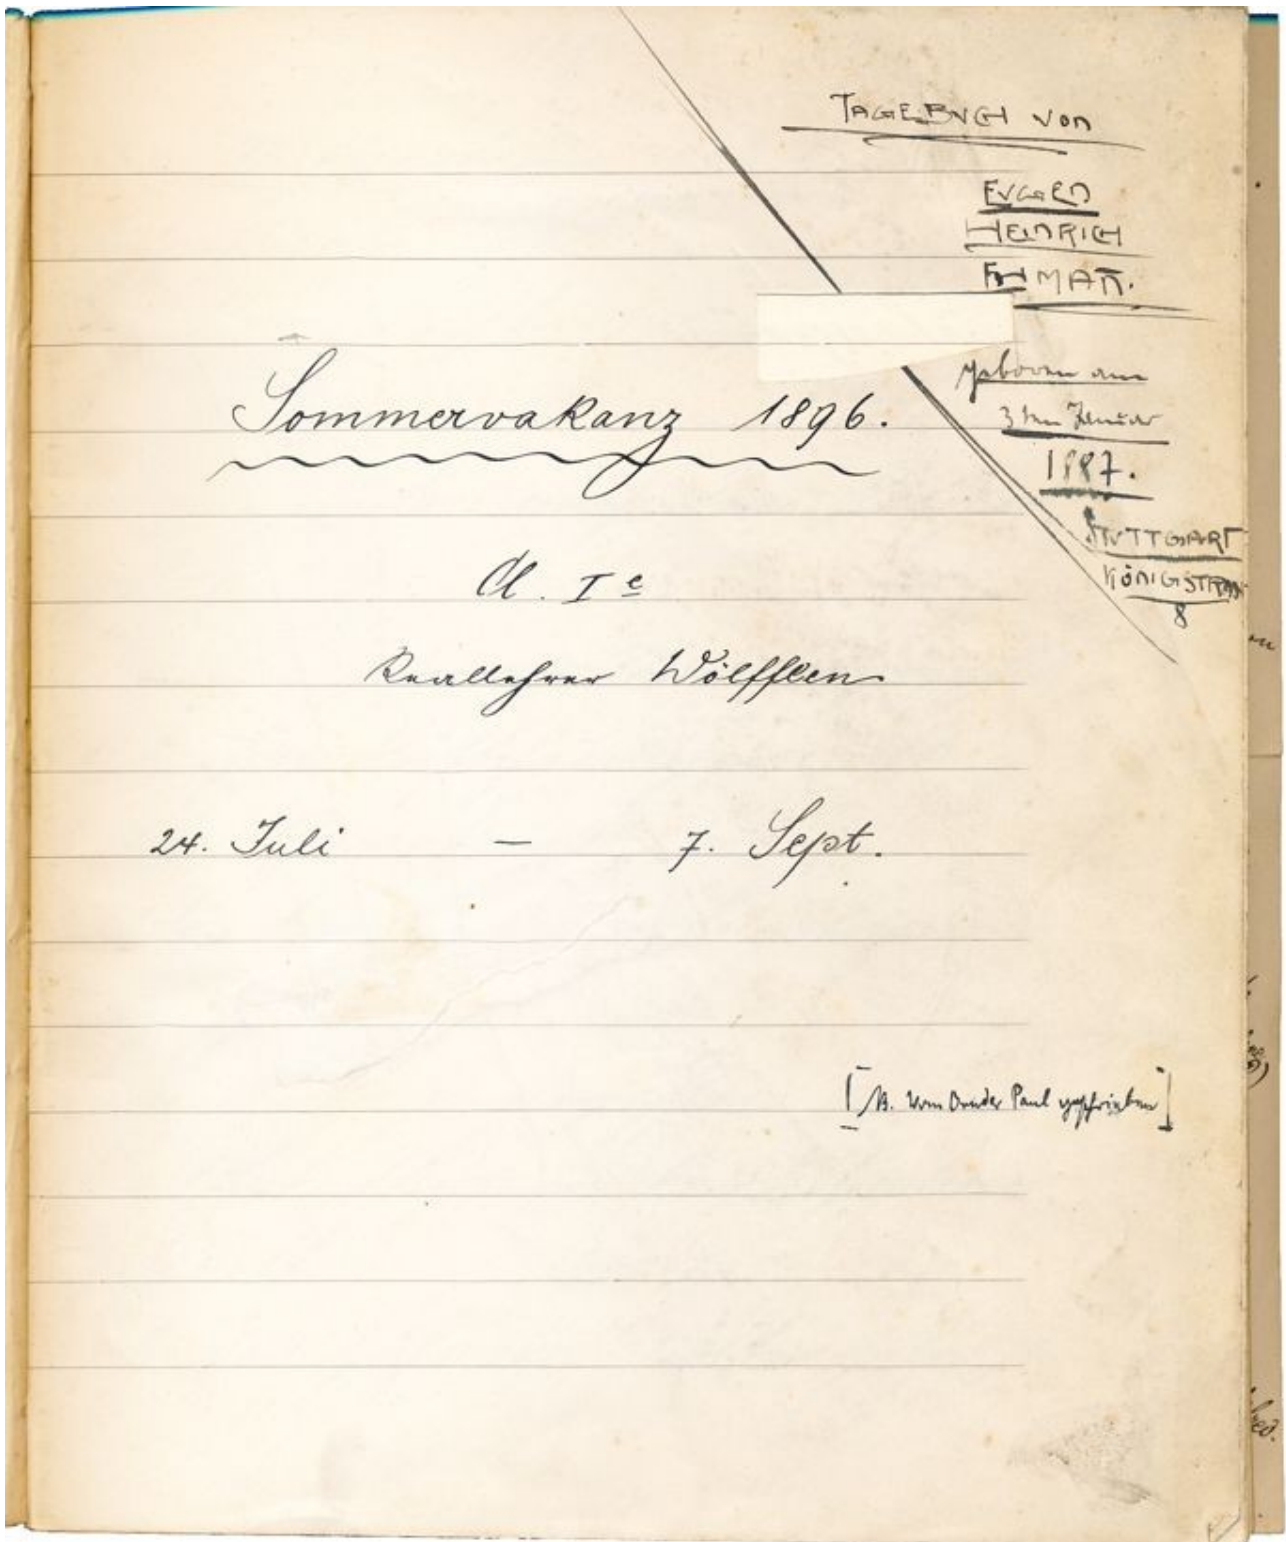 TAGEBVCH von
EVGEN
HEINRICH
EHMAN̄.
geboren am
3ten Januar
1887.
STVTTGART
KÖNIGSTRASSE
8
Sommervakanz 1896.
Cl. I c
Reallehrer Wölfflen
24. Juli – 7. Sept.
[N. vom Bruder Paul geschrieben]